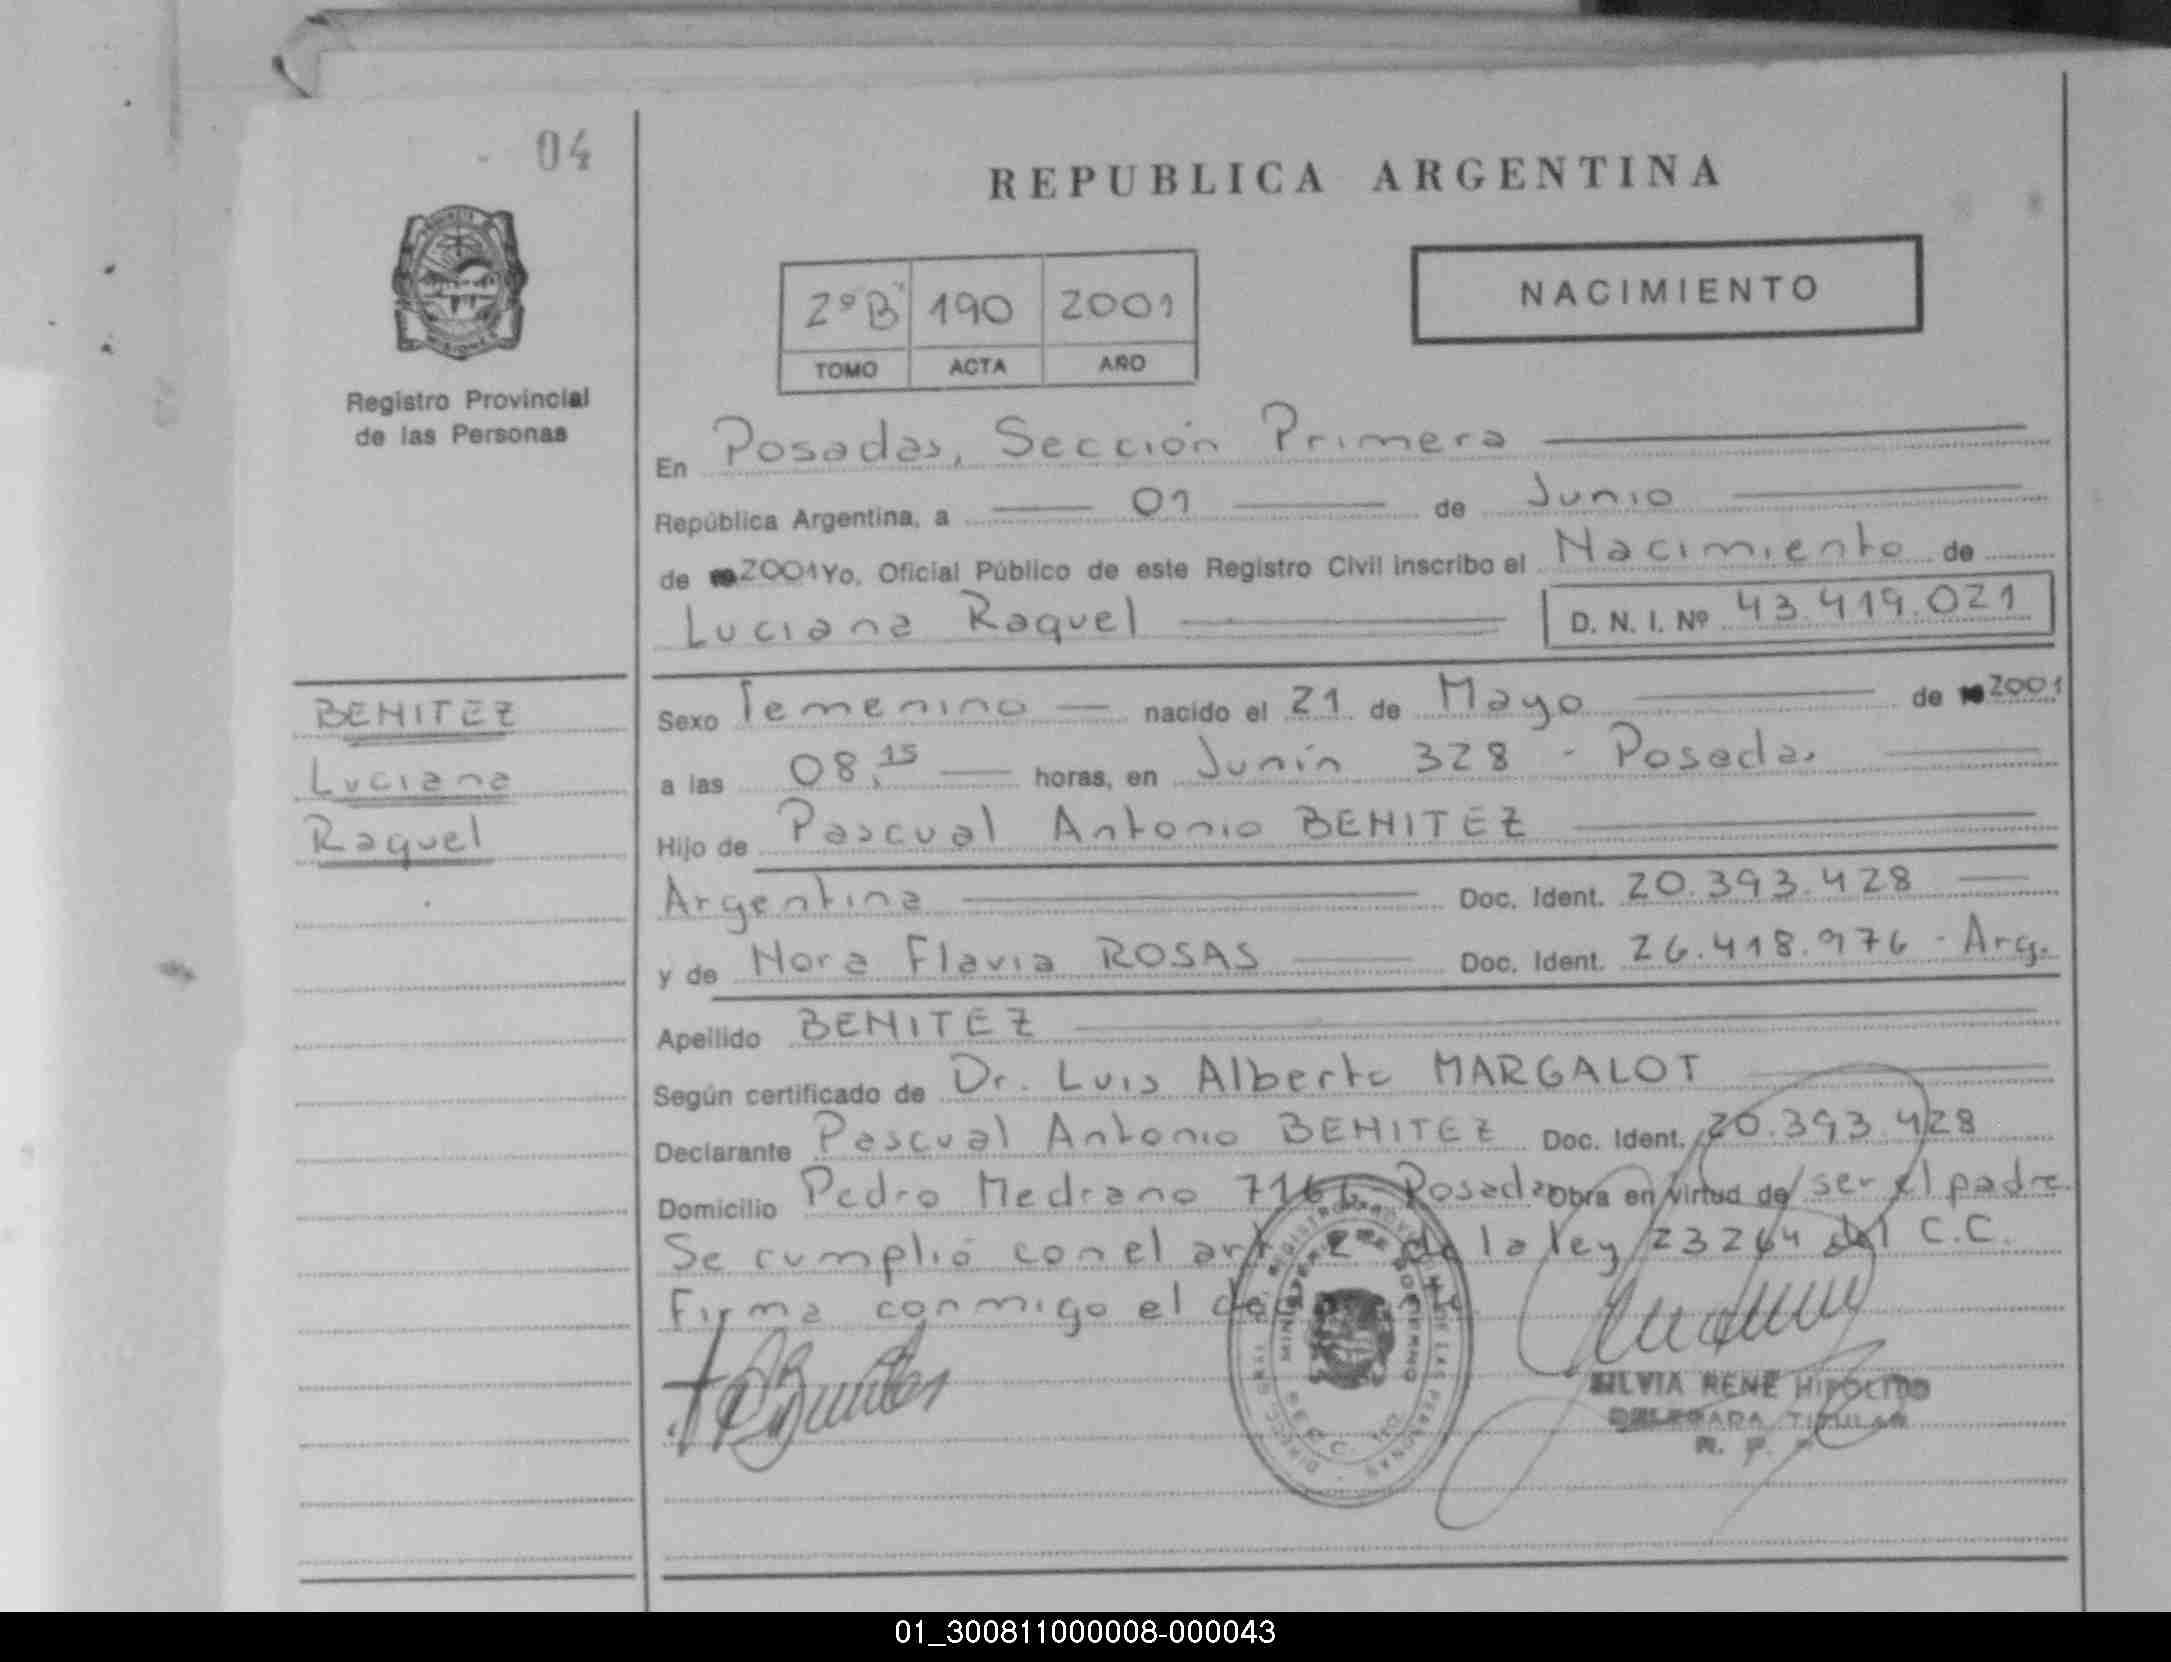 04
REPUBLICA ARGENTINA
NACIMIENTO
2º B" 190 2001
TOMO ACTA AÑO
Registro Provincial
de las Personas
En Posadas, Sección Primera
República Argentina, a 01 de Junio
de 2001 Yo, Oficial Público de este Registro Civil inscribo el Nacimiento de
Luciana Raquel D. N. I. Nº 43.419.021
BENITEZ
Luciana
Raquel
Sexo Femenino nacido el 21 de Mayo de 2001
a las 08,15 horas, en Junín 328 - Posadas
Hijo de Pascual Antonio BENITEZ
Argentina Doc. Ident. 20.393.428
y de Nora Flavia ROSAS Doc. Ident. 26.418.976 - Arg.
Apellido BENITEZ
Según certificado de Dr. Luis Alberto MARGALOT
Declarante Pascual Antonio BENITEZ Doc. Ident. 20.393.428
Domicilio Pedro Medrano Posadas Obra en virtud de ser el padre.
Se cumplió con el art. 2 de la ley 23264 del C.C.
Firma conmigo el
MINISTERIO DE GOBIERNO
SILVIA RENE HIPOLITO
DELEGADA TITULAR
01_300811000008-000043